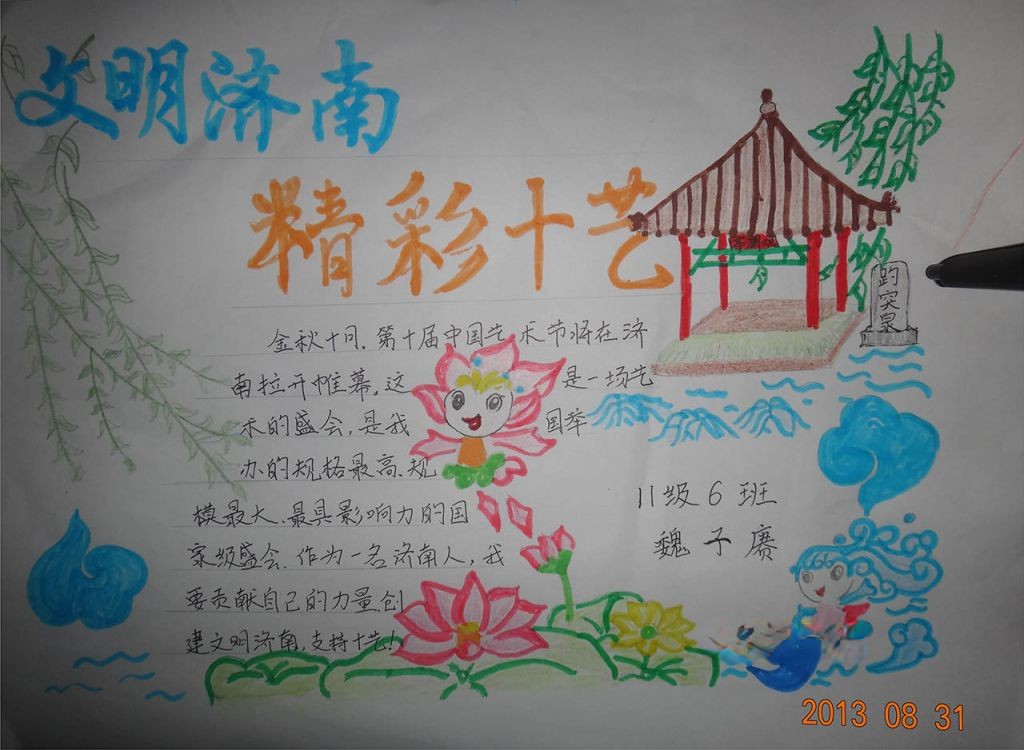 文明济南
精彩十艺
趵突泉
金秋十月,第十届中国艺术节将在济
南拉开帷幕。这是一场艺
术的盛会,是我国举
办的规格最高、规
模最大、最具影响力的国
家级盛会。作为一名济南人,我
要贡献自己的力量创
建文明济南,支持十艺!
11级6班
魏子赓
2013 08 31